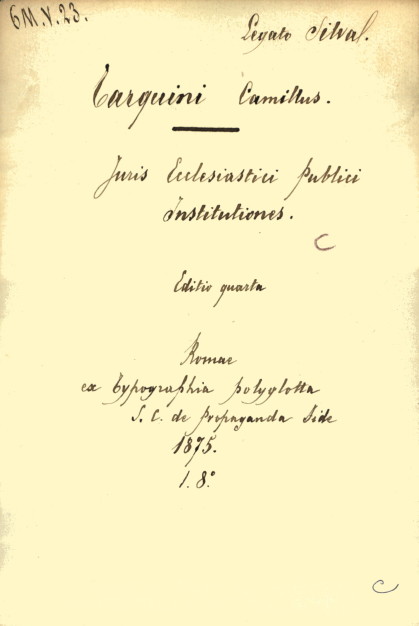 6M.V.23.
Legato Silval.
Tarquini Camillus.
Juris Ecclesiastici Publici
Institutiones.
C
Editio quarta
Romae
ex Typographia polyglotta
S. C. de Propaganda Fide
1875.
1. 8.°
C